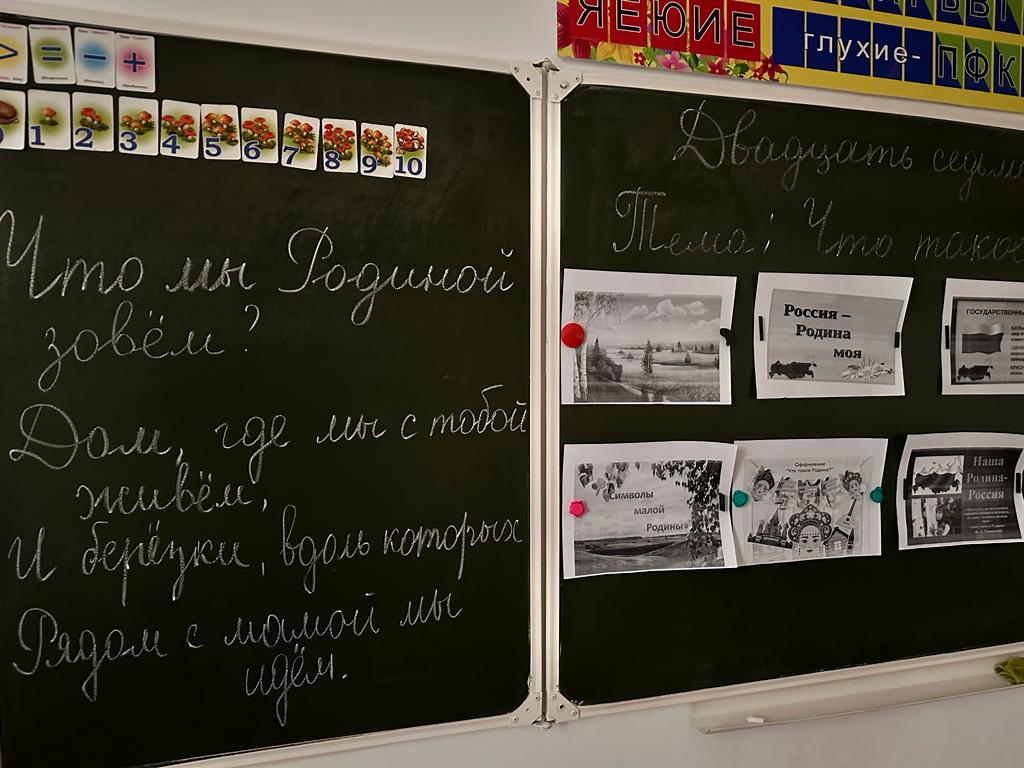 > = - +
1 2 3 4 5 6 7 8 9 10
Что мы Родиной
зовём?
Дом, где мы с тобой
живём,
И берёзки, вдоль которых
Рядом с мамой мы
идём.
ЯЕЮИЕ
глухие- ПФК
Двадцать
Тема: Что такое
Россия –
Родина
моя
Символы
малой
Родины»
Оформление
"Что такое Родина?"
Наша
Родина-
Россия